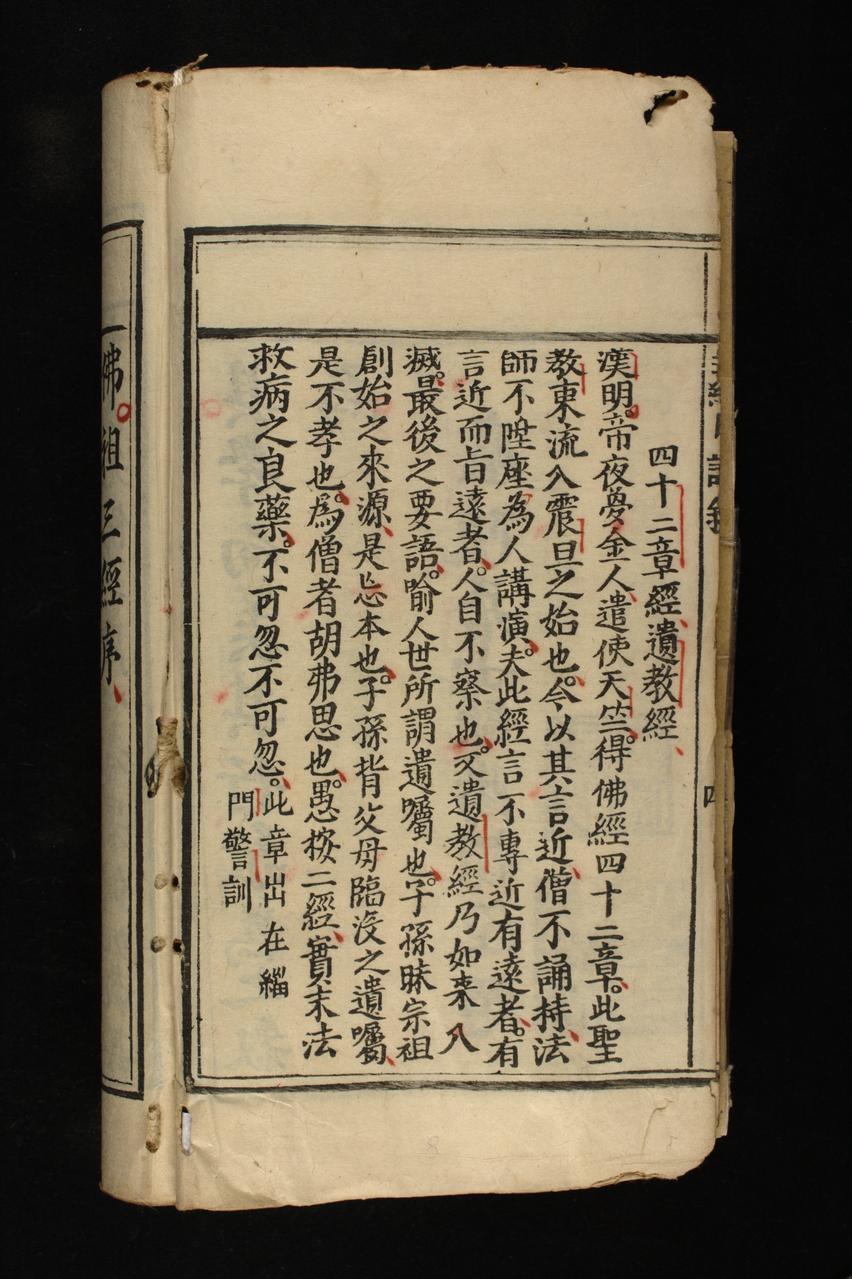 四十二章經遺教經
漢明帝夜夢金人遣使天竺得佛經四十二章此聖
教東流入震旦之始也今以其言近僧不誦持法
師不陞座為人講演夫此經言不專近有遠者有
言近而旨遠者人自不察也又遺教經乃如来入
滅最後之要語喻人世所謂遺囑也子孫昧宗祖
創始之來源是忘本也子孫背父母臨沒之遺囑
是不孝也為僧者胡弗思也愚按二經實末法
救病之良藥不可忽不可忽此章出在緇
門警訓
佛祖三經序